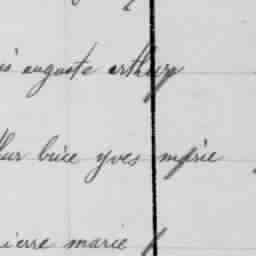 auguste arthur
brice yves marie
ierre marie